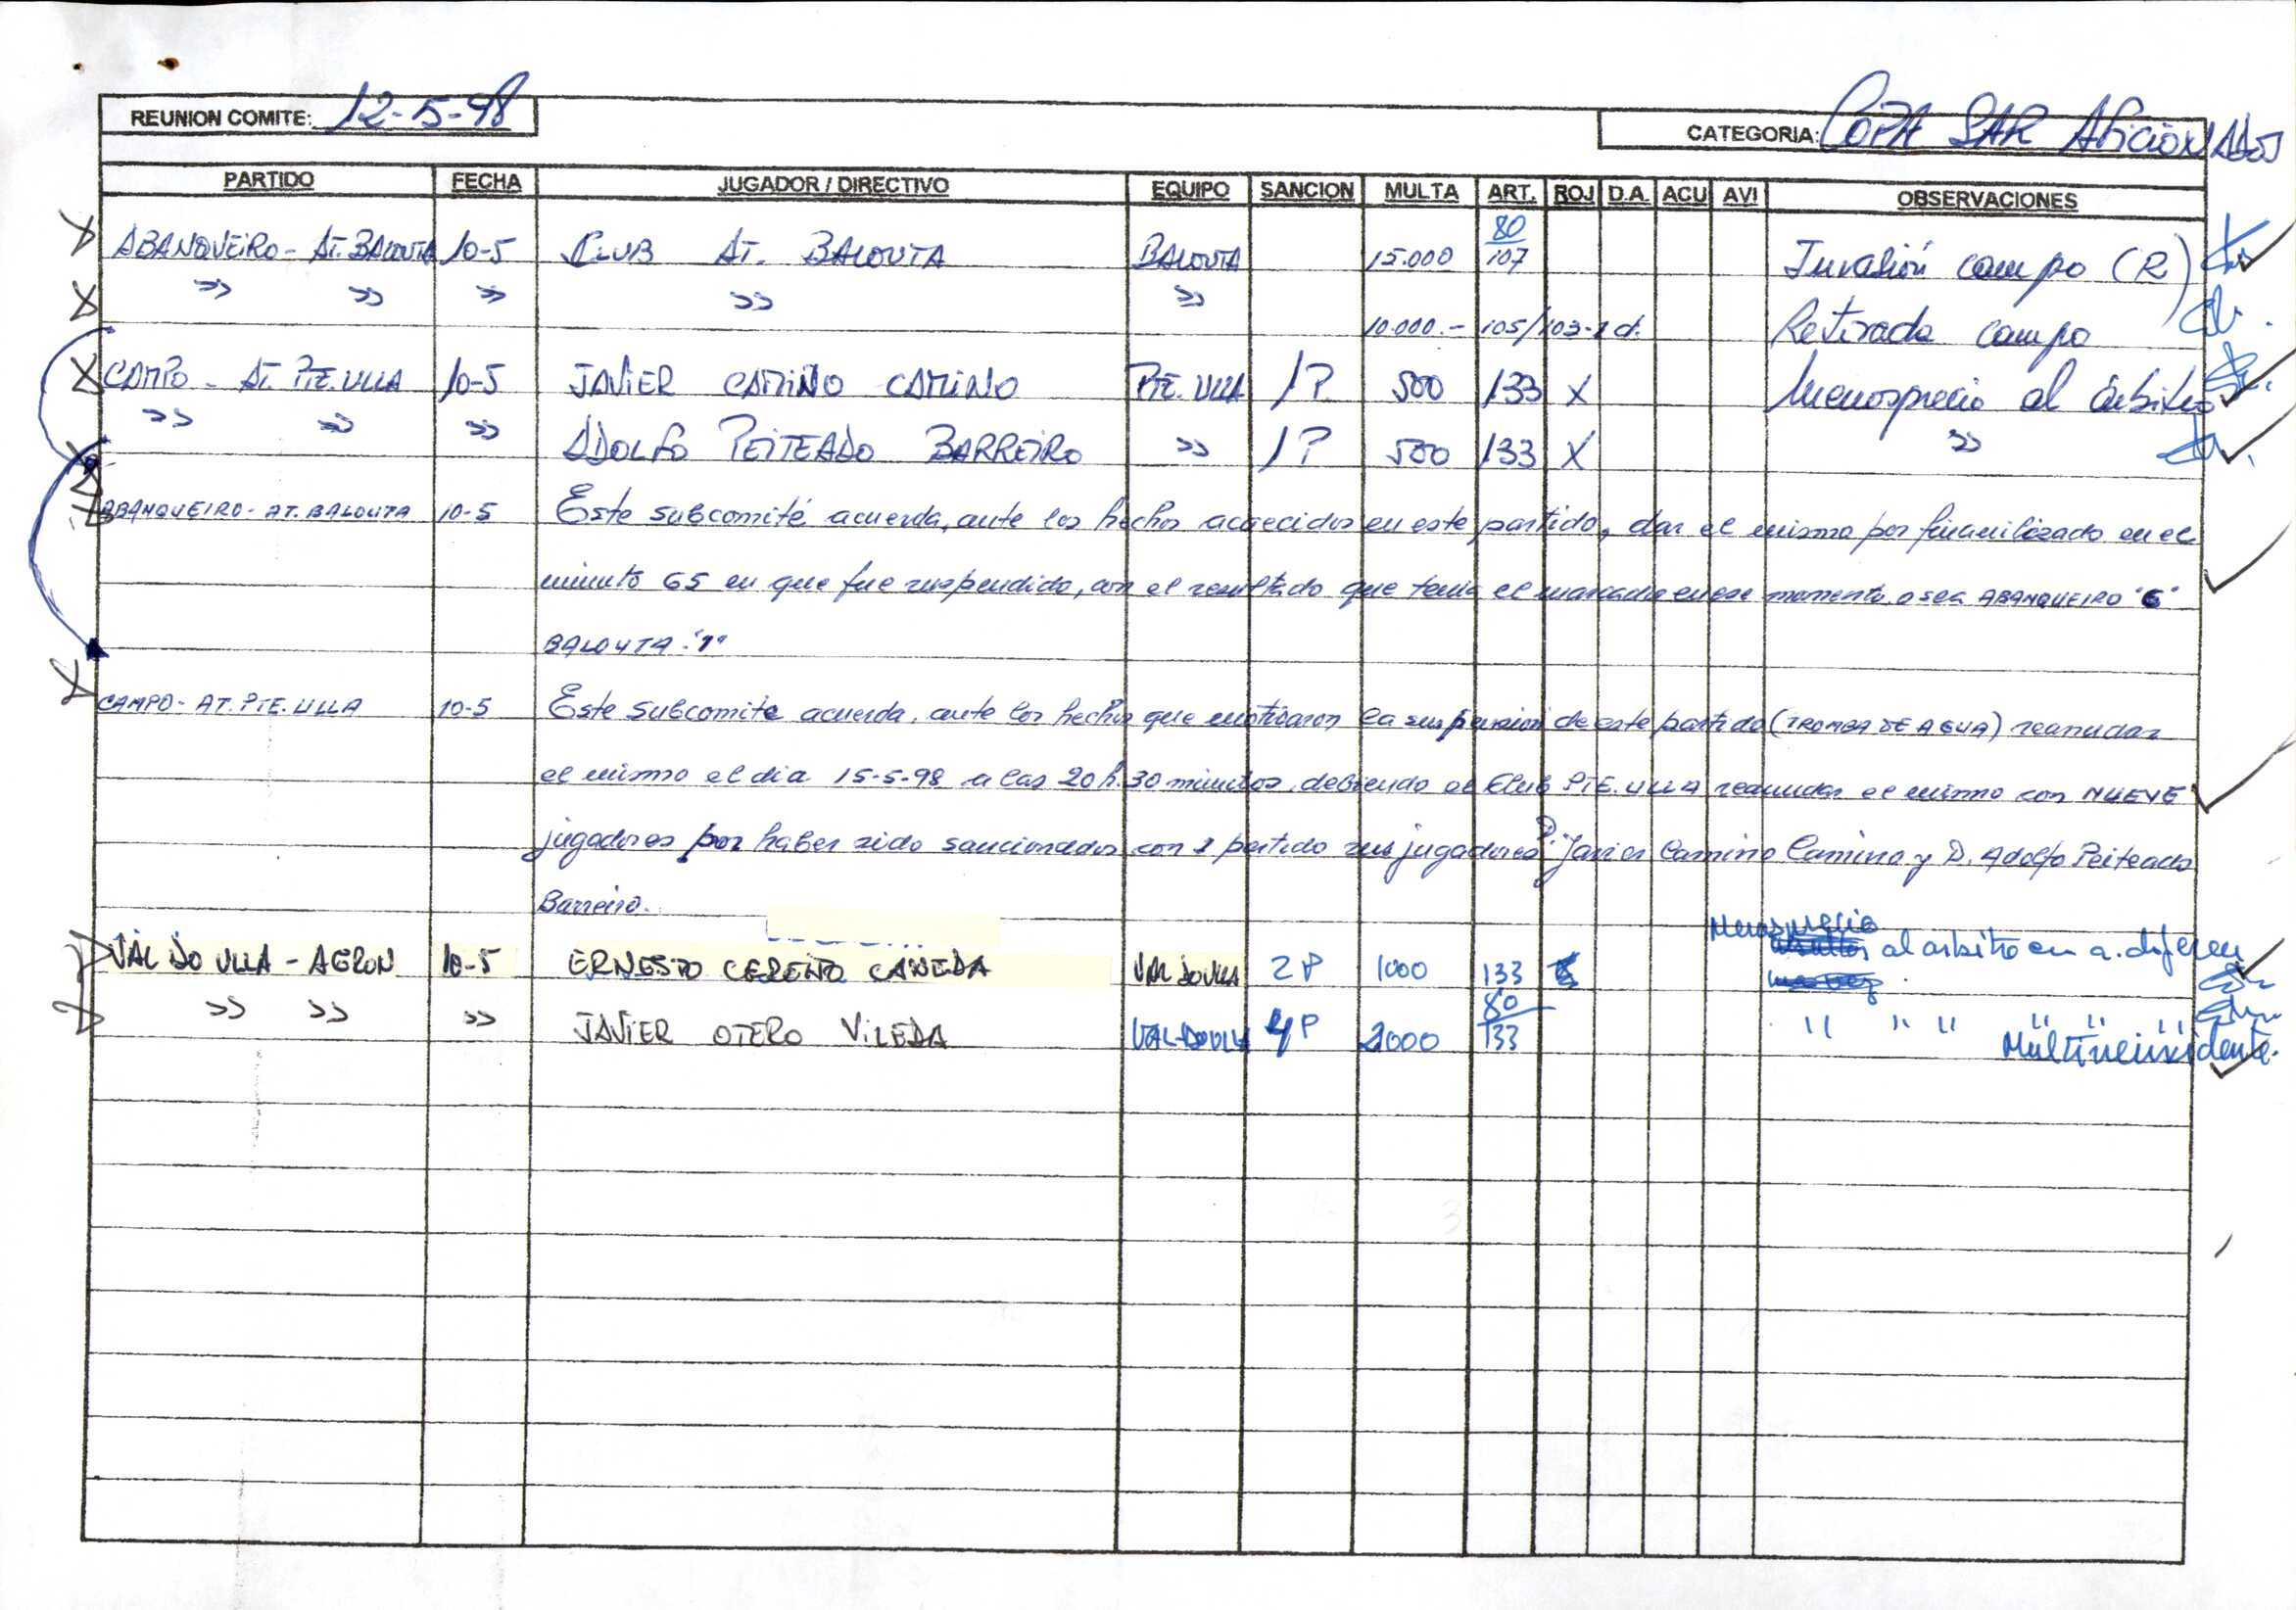 REUNION COMITE: 12-5-98
CATEGORIA: COPA SAR AFICIONADOS
PARTIDO FECHA JUGADOR / DIRECTIVO EQUIPO SANCION MULTA ART. ROJ D.A. ACU AVI OBSERVACIONES
ABANQUEIRO - AT. BALOUTA 10-5 CLUB AT. BALOUTA BALOUTA 15.000 80/107 Invasión campo (R)
>> >> >> >> >> 10.000.- 105/103-1 d. Retirada campo
CAMPO - AT. PTE. ULLA 10-5 JAVIER CAMIÑO CAMINO PTE. ULLA 1P 500 133 X Menosprecio al árbitro
>> >> >> ADOLFO PEITEADO BARREIRO >> 1P 500 133 X >>
ABANQUEIRO - AT. BALOUTA 10-5 Este subcomité acuerda, ante los hechos acaecidos en este partido, dar el mismo por finanilizado en el
minuto 65 en que fue suspendido, con el resultado que tenia el marcador en ese momento, o sea ABANQUEIRO "6"
BALOUTA - "1"
CAMPO - AT. PTE. ULLA 10-5 Este subcomite acuerda, ante los hechos que motivaron la suspension de este partido (TROMBA DE AGUA) reanudar
el mismo el dia 15-5-98 a las 20 h. 30 minutos, debiendo el Club PTE. ULLA reanudar el mismo con NUEVE
jugadores por haber sido sancionados con 1 partido sus jugadores D. Javier Camino Camino y D. Adolfo Peiteado
Barreiro.
VAL DO ULLA - AGRON 10-5 ERNESTO CEREÑO CANEDA VAL DO ULLA 2P 1000 133 Menosprecio al arbitro en a. diferen
>> >> >> JAVIER OTERO VILEDA VAL DO ULLA 4P 2000 80/133 " " " " " "
Multireincidente.